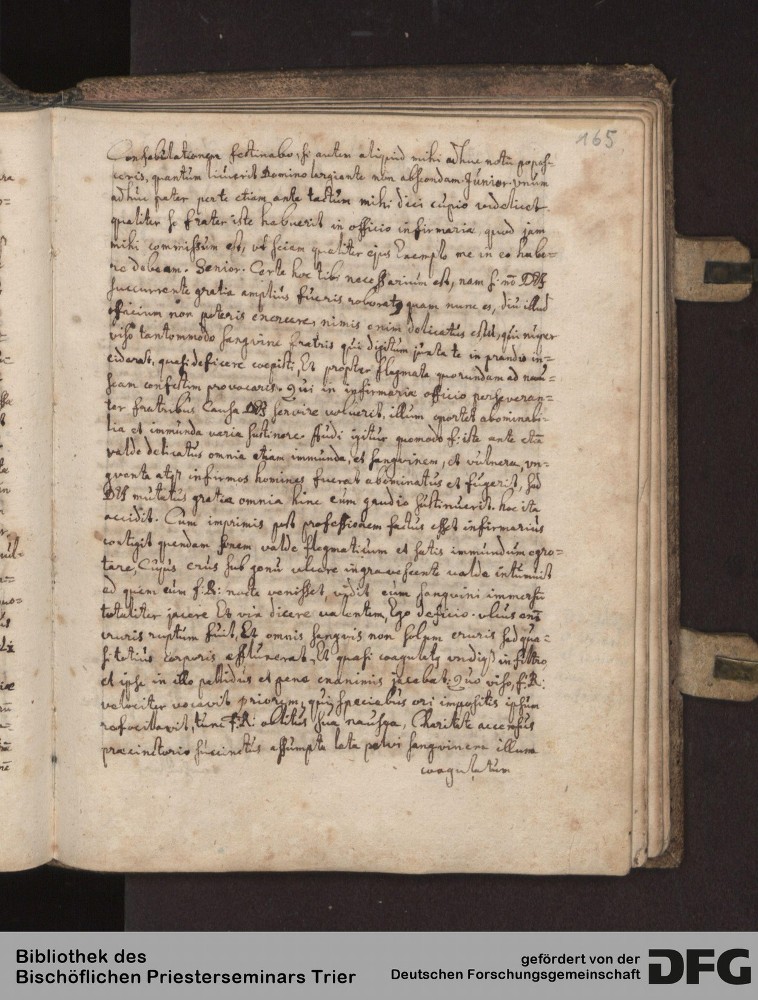 165
Confabulationem festinabo, si autem aliquid mihi adhuc notū popos-
ceris, quantum licuerit Domino largiente non abscondam. Junior. vnum
adhuc pater per te etiam ante tactum mihi dici cupio videlicet
qualiter se frater iste habuerit in officio infirmariæ, quod jam
mihi commissum est, vt sciam qualiter ejus Exemplo me in eo habe-
re debeam. Senior. Certe hoc tibi necessarium est, nam si
succurrente gratia amplius fueris roboratus quam nunc es, diu illud
officium non poteris exercere, nimis enim delicatus es qui nuper
viso tantommodo sanguine fratris qui digitum juxta te in prandio in-
ciderat, quasi deficere coepisti, Et propter flegmata quorundam ad nau-
seam confestim provocaris. Qui in infirmariæ officio perseveran-
ter fratribus Causa servire voluerit, illum oportet abominabi-
lia et immunda varia sustinere. Audi igitur quomodo f: iste ante
valde delicatus omnia etiam immunda, et sanguinem, et vulnera, vn-
guenta atq infirmos homines fuerat abominatus et fugerit, sed
mutatus gratia omnia hinc cum gaudio sustinuerit. hoc ita
accidit. Cum imprimis post professionem factus esset infirmarius
contigit quendam senem valde flegmaticum et satis immundum egro-
tare, Cujus crus sub genu ulcere ingravescente valde intumuit
ad quem cum f: R: nocte venisset, vidit eum sanguini immersū
totaliter jacere Et vix dicere valentem, Ego deficio.
cruris ruptum fuit, Et omnis sanguis non solum cruris sed qua-
si totius corporis effluxerat, Et quasi coagulatus vndiq in
et ipse in illo pallidus et pene exanimis jacebat. Quo viso, f. R:
velociter vocavit priorem, qui speciebus ori impositis ipsum
refocillavit, tunc f. R: oblitus suæ nauseæ, Charitate accensus
præcinctorio succinctus assumpta lata pelvi sanguinem illum
coagulatum
Bibliothek des
Bischöflichen Priesterseminars Trier
gefördert von der
Deutschen Forschungsgemeinschaft
DFG